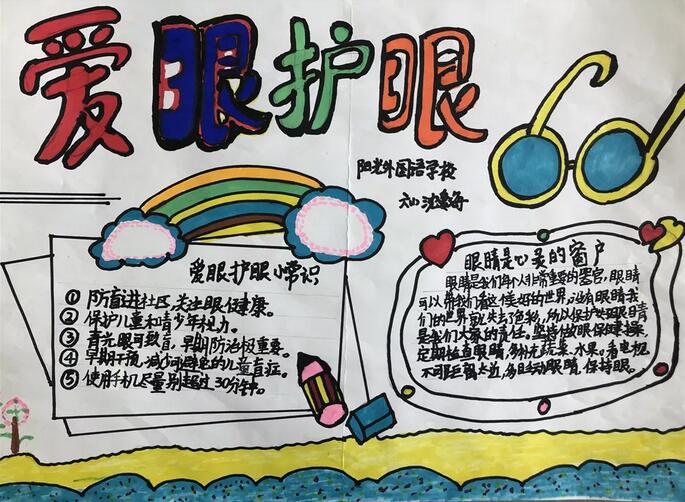 爱眼护眼
阳光外国语学校
爱眼护眼小常识
① 防盲进社区,关注眼健康。
② 保护儿童和青少年视力。
③ 青光眼可致盲,早期防治极重要。
④ 早期干预,减少可避免的儿童盲症。
⑤ 使用手机尽量别超过30分钟。
眼睛是心灵的窗户
眼睛是我们每个人非常重要的器官,眼睛
可以带我们看这个美好的世界,没有眼睛我
们的世界就失去了色彩,所以保护好眼睛
是我们大家的责任。坚持做眼保健操,
定期检查眼睛,多补充蔬菜、水果。看电视
不可距离太近,多运动眼睛,保持眼。